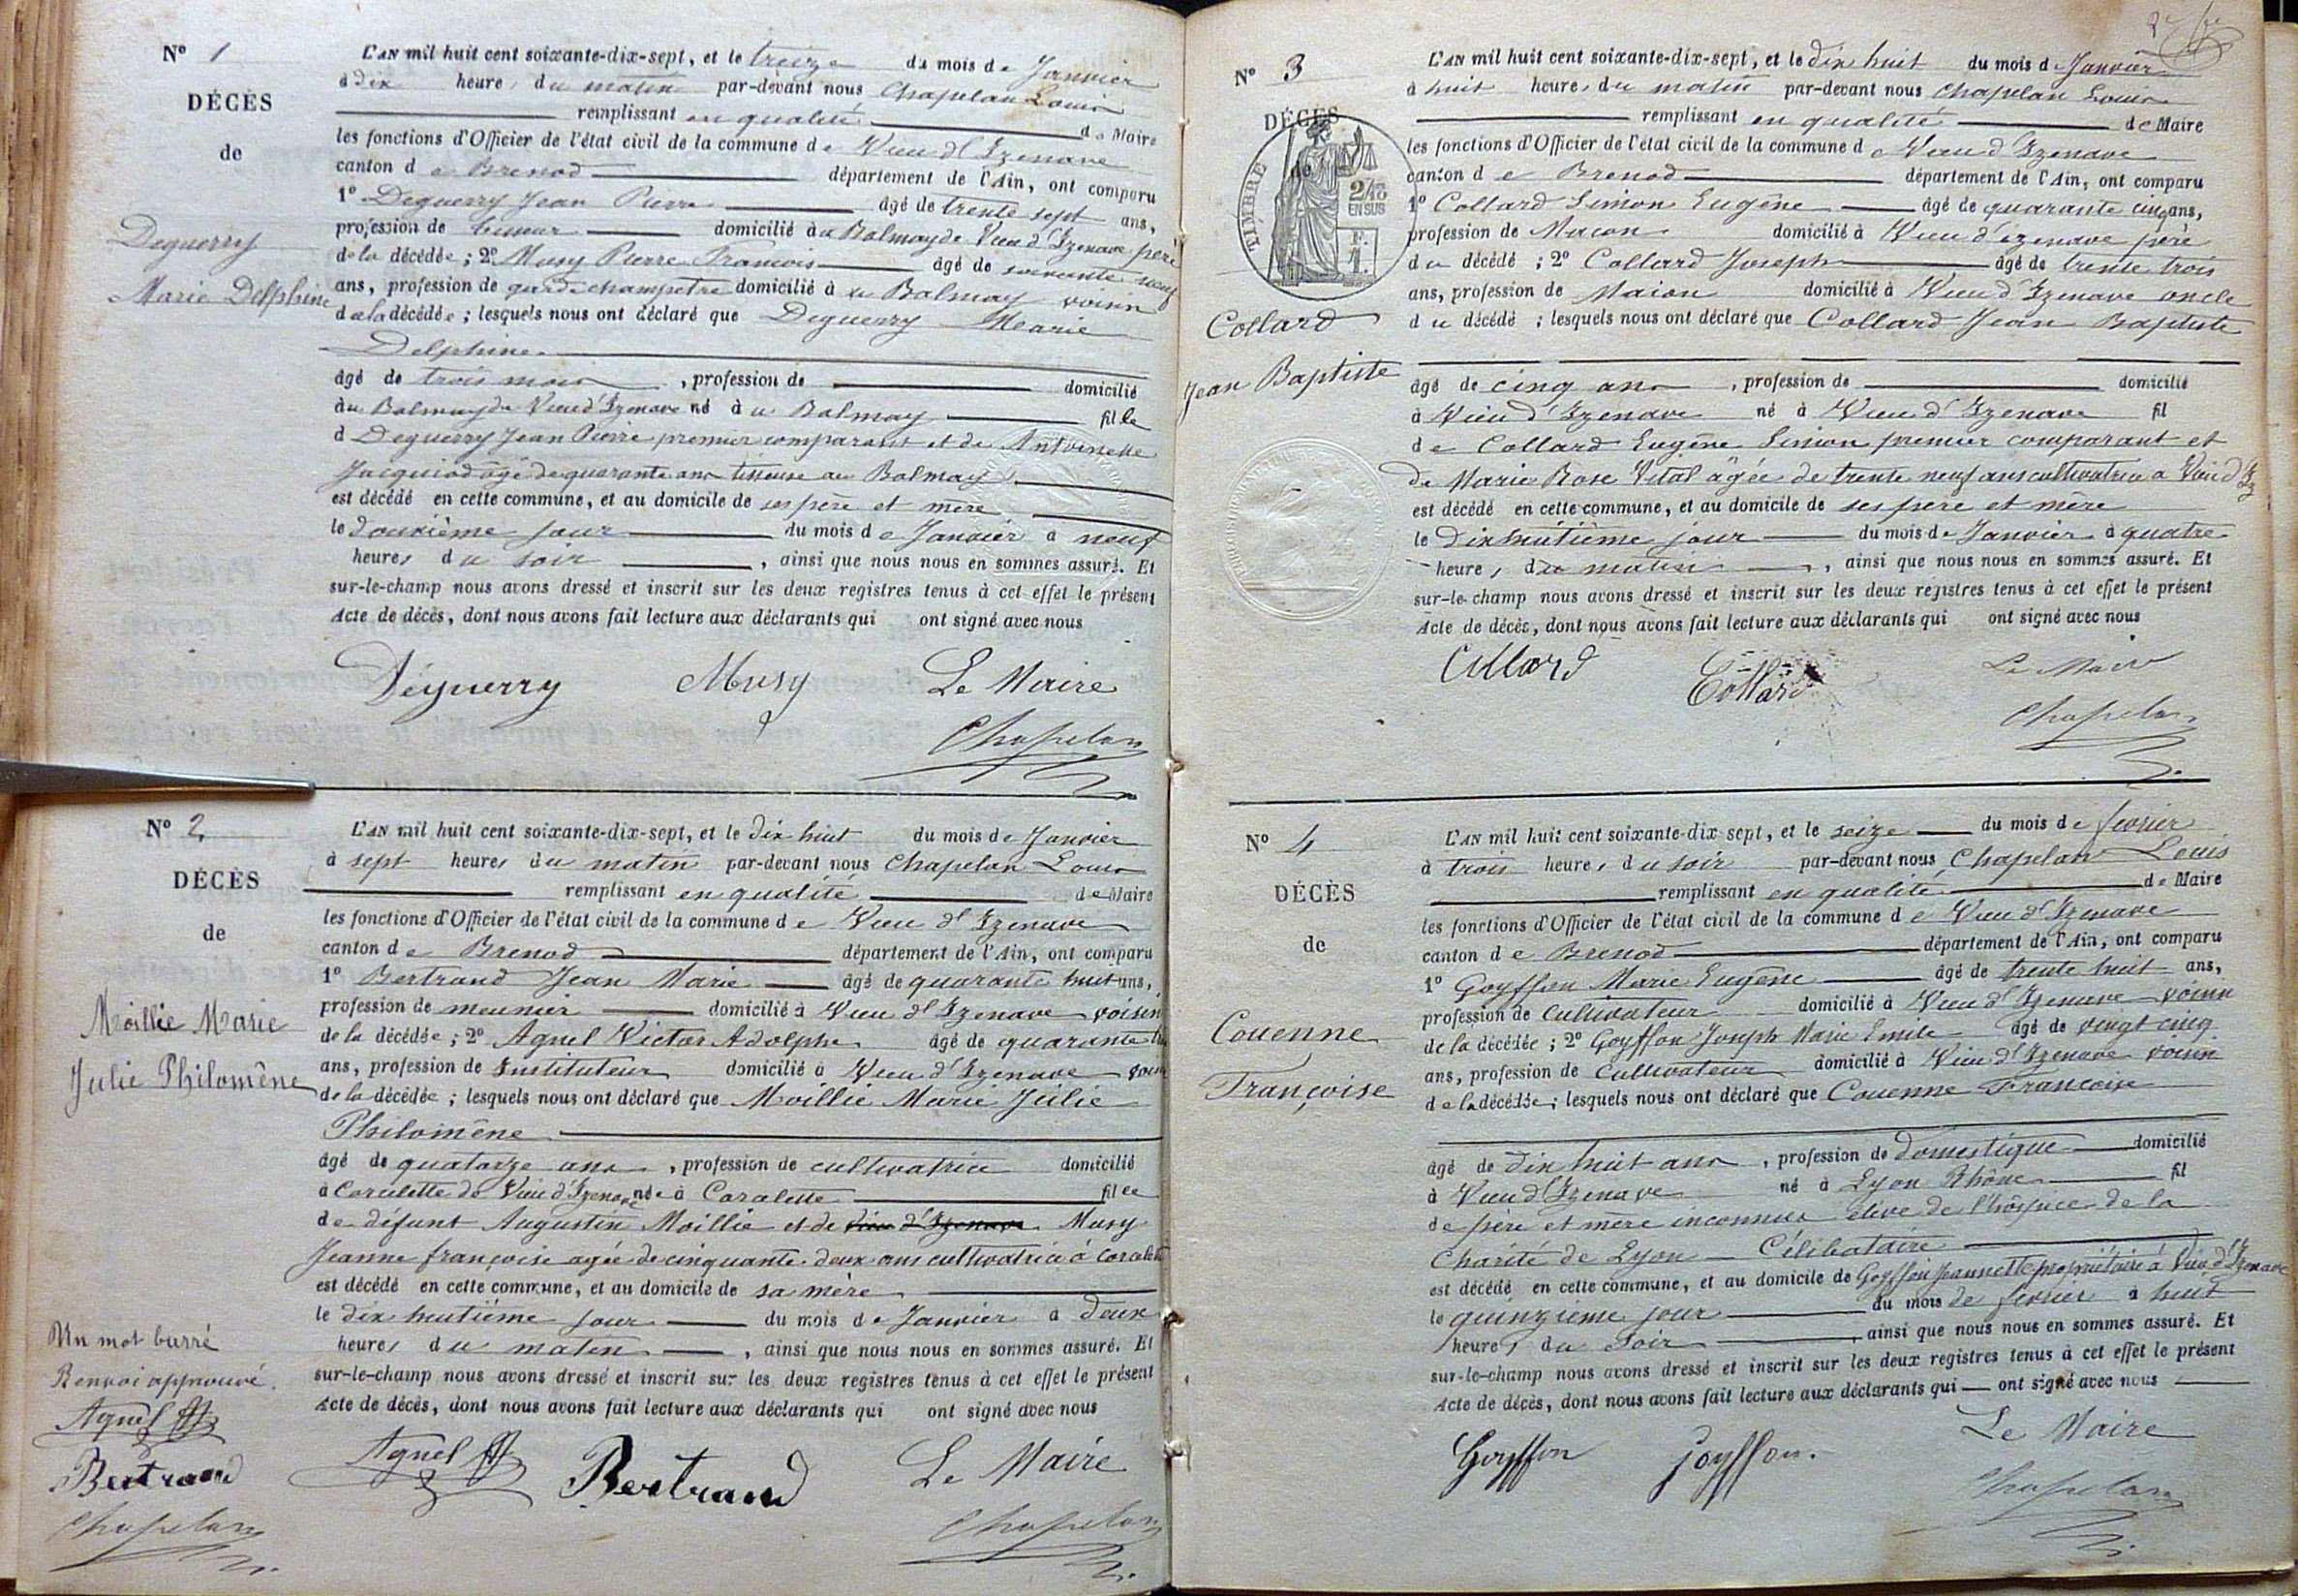 N° 1
DÉCÈS
de
Deguerry
Marie Delphine
L'AN mil huit cent soixante-dix-sept, et le treize du mois de Janvier
à dix heures du matin par-devant nous Chapelan Louis
remplissant en qualité de Maire
les fonctions d'Officier de l'état civil de la commune de Vieu d'Izenave
canton de Brenod département de l'Ain, ont comparu
1° Deguerry Jean Pierre âgé de trente sept ans,
profession de domicilié à u Balmay de Vieu d'Izenave père
de la décédée ; 2° Musy Pierre François âgé de soixante neuf
ans, profession de garde champetre domicilié à u Balmay voisin
de la décédée ; lesquels nous ont déclaré que Deguerry Marie
Delphine
âgé de trois mois , profession de domicilié
à u Balmay de Vieu d'Izenave né à u Balmay fille
d Deguerry Jean Pierre premier comparant et de Antoinette
Jacquiod âgé de quarante ans tisseuse au Balmay
est décédé en cette commune, et au domicile de ses père et mère
le douxième jour du mois de Janvier à neuf
heures du soir , ainsi que nous nous en sommes assuré. Et
sur-le-champ nous avons dressé et inscrit sur les deux registres tenus à cet effet le présent
Acte de décès, dont nous avons fait lecture aux déclarants qui ont signé avec nous
Déguerry Musy Le Maire
Chapelan
N° 2
DÉCÈS
de
Moillie Marie
Julie Philomène
L'AN mil huit cent soixante-dix-sept, et le dix huit du mois de Janvier
à sept heures du matin par-devant nous Chapelan Louis
remplissant en qualité de Maire
les fonctions d'Officier de l'état civil de la commune de Vieu d'Izenave
canton de Brenod département de l'Ain, ont comparu
1° Bertrand Jean Marie âgé de quarante huit ans,
profession de meunier domicilié à Vieu d'Izenave voisin
de la décédée ; 2° Agnel Victor Adolphe âgé de quarante
ans, profession de Instituteur domicilié à Vieu d'Izenave voisin
de la décédée ; lesquels nous ont déclaré que Moillie Marie Julie
Philomène
âgé de quatorze ans , profession de cultivatrice domicilié
à Coralette de Vieu d'Izenave née à Coralette fille
de défunt Augustin Moillie et de Vieu d'Izenave Musy
Jeanne françoise agée de cinquante deux ans cultivatrice à Coralette
est décédé en cette commune, et au domicile de sa mère
le dix huitième jour du mois de Janvier à deux
heures du matin , ainsi que nous nous en sommes assuré. Et
sur-le-champ nous avons dressé et inscrit sur les deux registres tenus à cet effet le présent
Acte de décès, dont nous avons fait lecture aux déclarants qui ont signé avec nous
Un mot barré
Renvoi approuvé.
Agnel
Bertrand
Chapelan
Agnel Bertrand Le Maire
Chapelan
N° 3
DÉCÈS
de
TIMBRE
2/10
EN SUS
F.
1.
Collard
Jean Baptiste
L'AN mil huit cent soixante-dix-sept, et le dix huit du mois d Janvier
à huit heures du matin par-devant nous Chapelan Louis
remplissant en qualité de Maire
les fonctions d'Officier de l'état civil de la commune de Vieu d'Izenave
canton de Brenod département de l'Ain, ont comparu
1° Collard Simon Eugène âgé de quarante cinq ans,
profession de Macon domicilié à Vieu d'izenave père
du décédé ; 2° Collard Joseph âgé de trente trois
ans, profession de Maion domicilié à Vieu d'Izenave oncle
du décédé ; lesquels nous ont déclaré que Collard Jean Baptiste
âgé de cinq ans , profession de domicilié
à Vieu d'Izenave né à Vieu d'Izenave fil
de Collard Eugène Simon premier comparant et
de Marie Rose Vital âgée de trente neuf ans cultivatrice a Vieu d'Iz
est décédé en cette commune, et au domicile de ses père et mère
le Dixhuitième jour du mois de Janvier à quatre
heures du matin , ainsi que nous nous en sommes assuré. Et
sur-le-champ nous avons dressé et inscrit sur les deux registres tenus à cet effet le présent
Acte de décès, dont nous avons fait lecture aux déclarants qui ont signé avec nous
Collard Collard Le Maire
Chapelan
N° 4
DÉCÈS
de
Couenne
Françoise
L'AN mil huit cent soixante-dix-sept, et le seize du mois de fevrier
à trois heures du soir par-devant nous Chapelan Louis
remplissant en qualité de Maire
les fonctions d'Officier de l'état civil de la commune de Vieu d'Izenave
canton de Brenod département de l'Ain, ont comparu
1° Goyffon Marie Eugène âgé de trente huit ans,
profession de Cultivateur domicilié à Vieu d'Izenave voisin
de la décédée ; 2° Goyffon Joseph Marie Emile âgé de vingt cinq
ans, profession de Cultivateur domicilié à Vieu d'Izenave voisin
de la décédée ; lesquels nous ont déclaré que Couenne Francoise
âgé de dix huit ans , profession de domestique domicilié
à Vieu d'Izenave né à Lyon Rhône fil
de père et mère inconnus élève de l'hospice de la
Charité de Lyon – Célibataire
est décédé en cette commune, et au domicile de Goyffon Jeannette propriétaire à Vieu d'Izenave
le quinzième jour du mois de fevrier à huit
heures du Soir , ainsi que nous nous en sommes assuré. Et
sur-le-champ nous avons dressé et inscrit sur les deux registres tenus à cet effet le présent
Acte de décès, dont nous avons fait lecture aux déclarants qui ont signé avec nous
Goyffon Goyffon. Le Maire
Chapelan